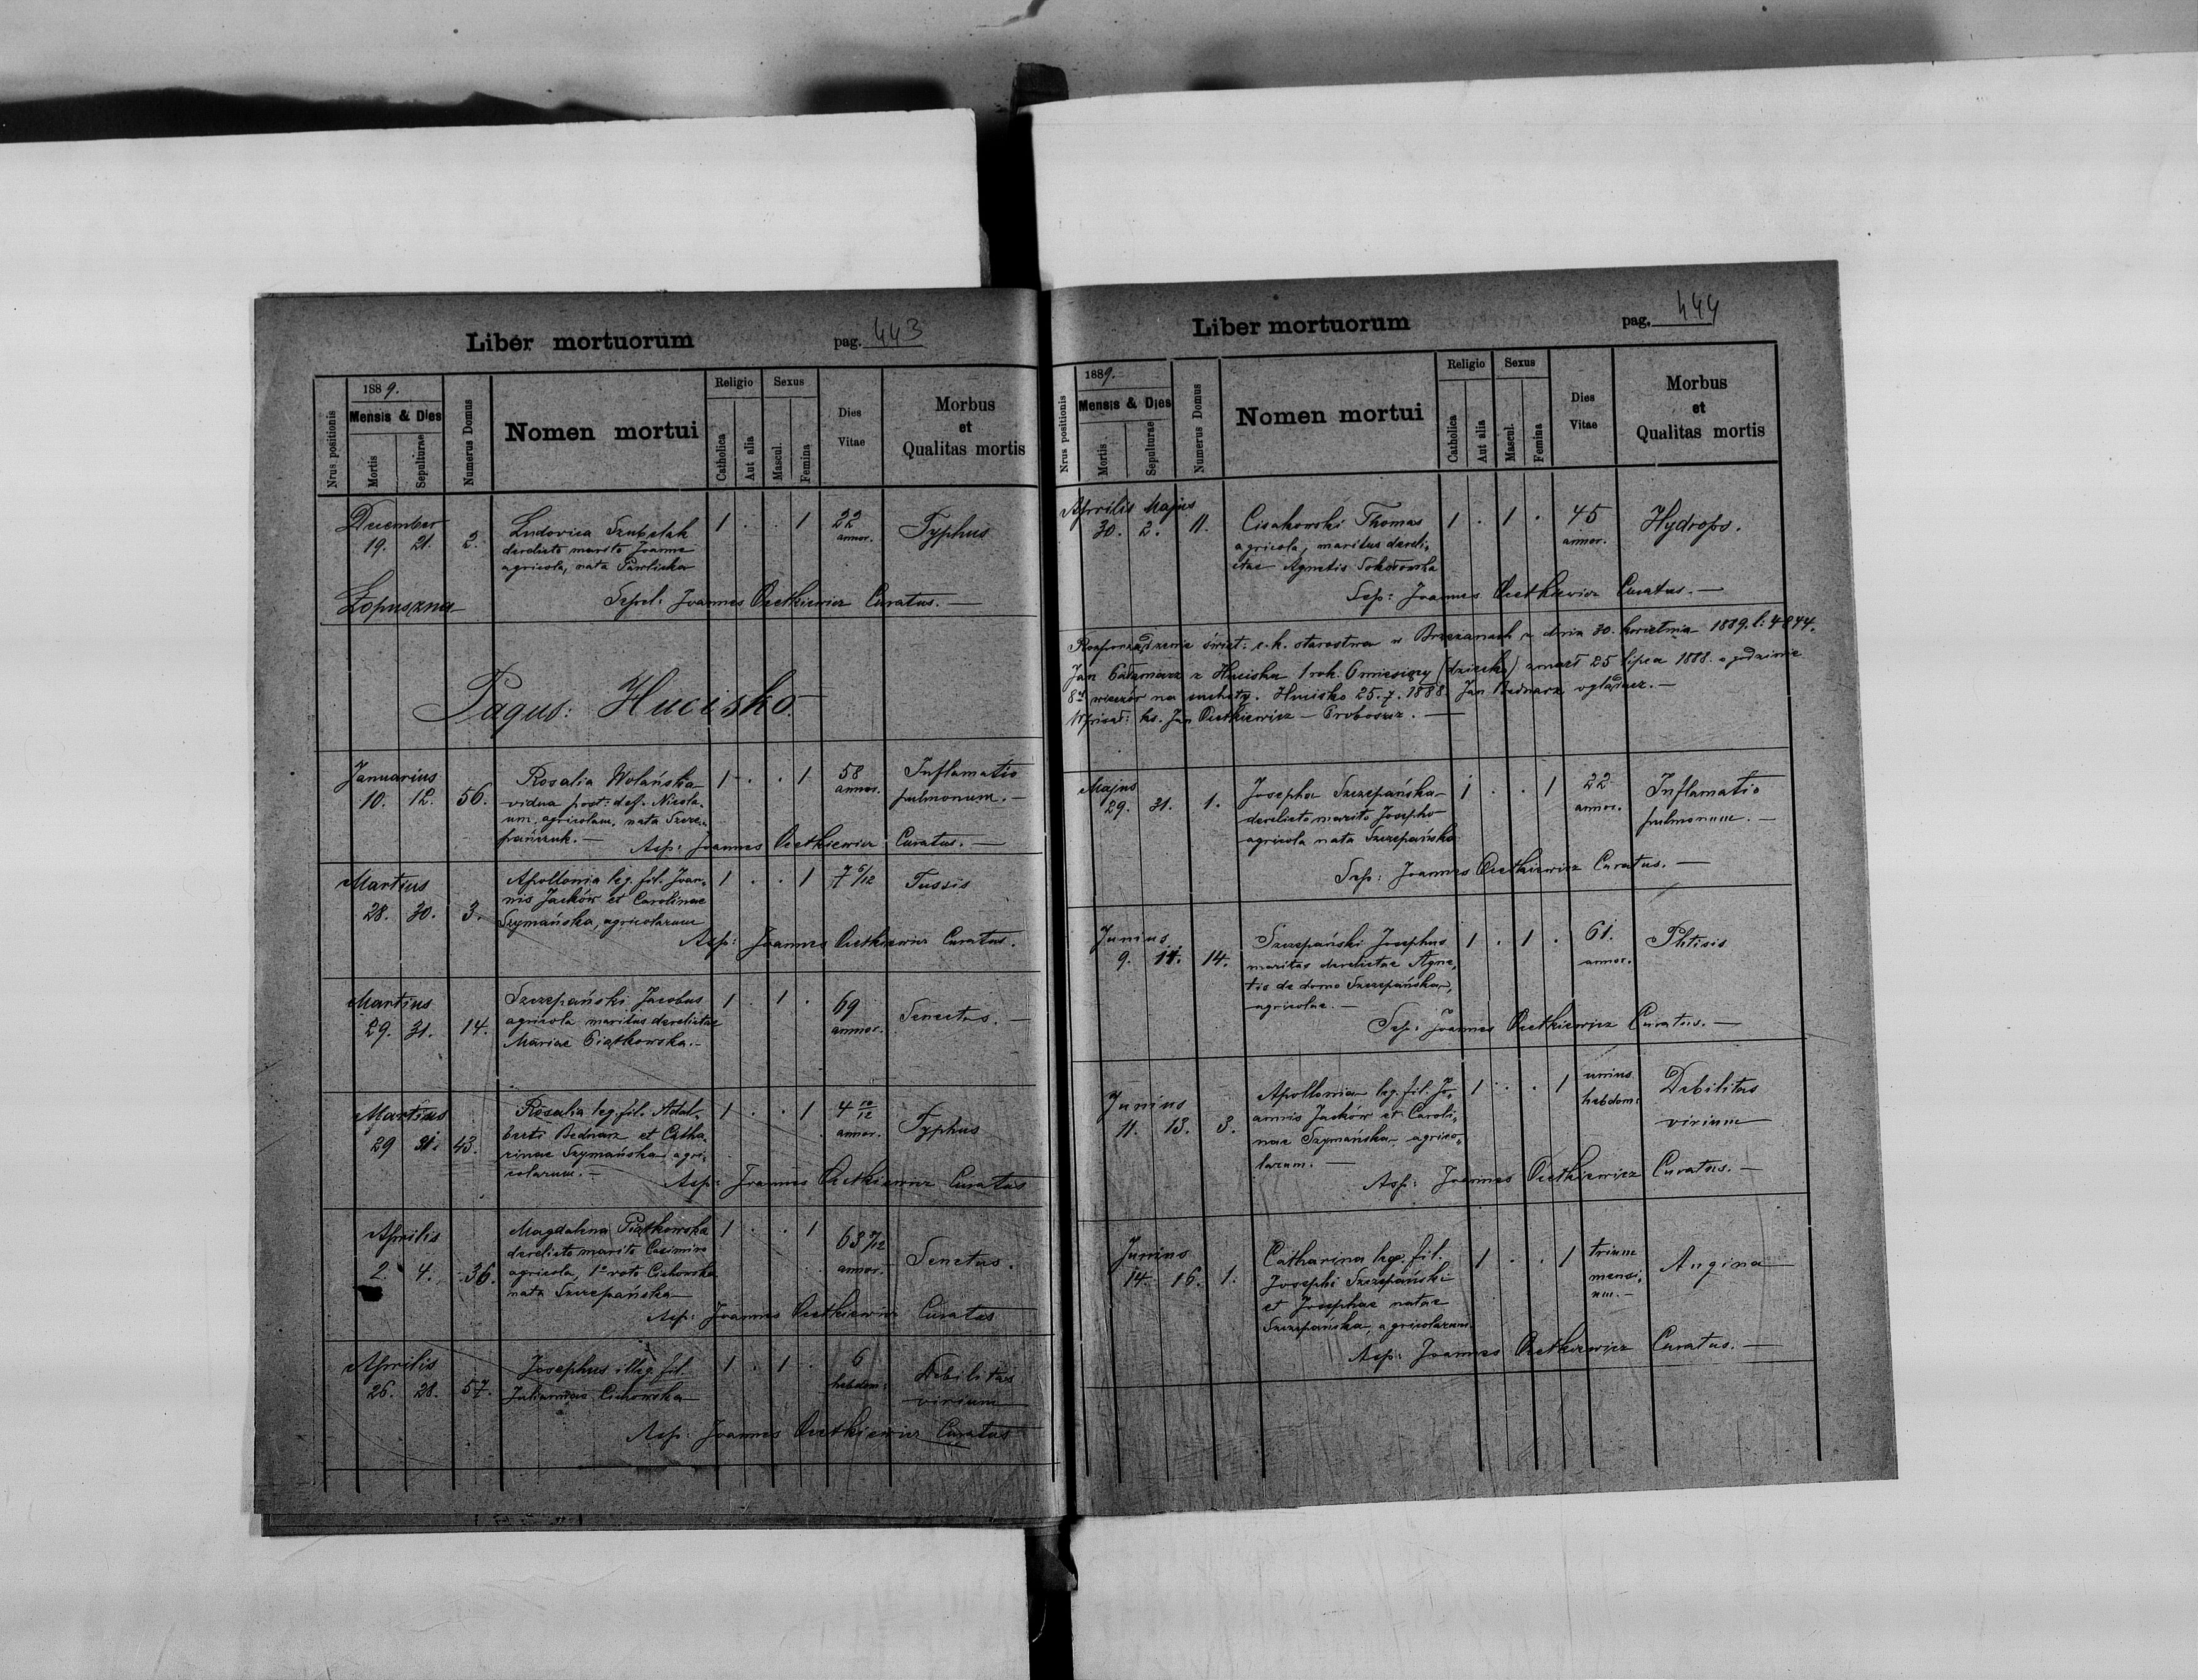 Liber mortuorum pag. 443
1889.
Nrus positionis
Mensis & Dies
Mortis
Sepulturae
Numerus Domus
Nomen mortui
Religio
Catholica
Aut alia
Sexus
Mascul.
Femina
Dies Vitae
Morbus
et
Qualitas mortis
December
19. 21. 2. Ludovica 1 . . 1 22 annor. Typhus
derelicto marito Joanne
agricola, nata Pawlicka
Łopuszna Sepel: Joannes Ocetkiewicz Curatus. —
Pagus: Hucisko.
Januarius
10. 12. 56. Rosalia Wolańska 1 . . 1 58 annor. Inflamatio
vidua post def. Nicola- pulmonum. —
um, agricolam, nata Szcze-
pańczuk. — Asp: Joannes Ocetkiewicz Curatus. —
Martius
28. 30. 3. Apollonia leg. fil. Joan- 1 . . 1 7 6/12 Tussis
nis Jacków et Carolinae
Szymańska, agricolarum
Asp: Joannes Ocetkiewicz Curatus.
Martius
29. 31. 14. Szczepański Jacobus 1 . 1 . 69 annor. Senectus. —
agricola maritus derelictae
Mariae Piątkowska. —
Martius
29 31. 43. Rosalia leg. fil. Adal- 1 . . 1 4 10/12 annor. Typhus
berti Bednarz et Catha-
rinae Szymańska agri-
colarum. — Asp: Joannes Ocetkiewicz Curatus
Aprilis
2. 4. 36. Magdalena Piątkowska 1 . . 1 63 annor. Senectus.
derelicto marito Casimiro
agricola, 1º voto Cichowska
nata Szczepańska
Asp: Joannes Ocetkiewicz Curatus
Aprilis
26. 28. 57. Josephus illeg. fil. 1 . 1 . 6 hebdom: Debilitas
Julianniae Cichowska virium
Asp: Joannes Ocetkiewicz Curatus
Liber mortuorum pag. 444
1889.
Nrus positionis
Mensis & Dies
Mortis
Sepulturae
Numerus Domus
Nomen mortui
Religio
Catholica
Aut alia
Sexus
Mascul.
Femina
Dies Vitae
Morbus
et
Qualitas mortis
Aprilis Majus
30. 2. 11. Thomas 1 . 1 . 45 annor. Hydrops.
agricola, maritus dereli-
ctae Agnetis Sokołowska
Sep: Joannes Ocetkiewicz Curatus. —
Rozporządzenie świet: c. k. starostwa w Brzeżanach z dnia 30. kwietnia 1889. l: 4844.
Jan z Huciska 1 rok 6 miesięcy (dziecko) zmarł 25 lipca 1888. o godzinie
8ej wieczór na suchoty. Hucisko 25. 7. 1888. Jan Bednarz oglądacz. —
Wpisał: ks. Jan Ocetkiewicz — Proboszcz. —
Majus
29. 31. 1. Josepha Szczepańska 1 . . 1 22 annor. Inflamatio
derelicto marito Josepho pulmonum. —
agricola nata Szczepańska
Sep: Joannes Ocetkiewicz Curatus. —
Junius
9. 11. 14. Szczepański Josephus 1 . 1 . 61. annor. Phtisis
maritus derelictae Agne-
tis de domo Szczepańska,
agricolae. —
Sep: Joannes Ocetkiewicz Curatus. —
Junius
11. 13. 3. Apollonia leg. fil. Jo- 1 . . 1 unius hebdom: Debilitas
annis Jacków et Caroli- virium
nae Szymańska agrico-
larum. —
Asp: Joannes Ocetkiewicz Curatus. —
Junius
14. 16. 1. Catharina leg. fil. 1 . . 1 trium mensi- um. — Angina
Josephi Szczepański
et Josephae natae
Szczepańska, agricolarum.
Asp: Joannes Ocetkiewicz Curatus. —